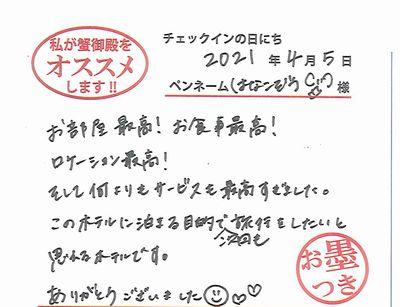 私が蟹御殿を
オススメ
します!!
チェックインの日にち
2021 年 4 月 5 日
ペンネーム 様
お部屋最高! お食事最高!
ロケーション最高!
そして何よりもサービスも最高すぎました。
このホテルに泊まる目的で旅行をしたいと
次回も
思えるホテルです。
ありがとうございました
お墨つき